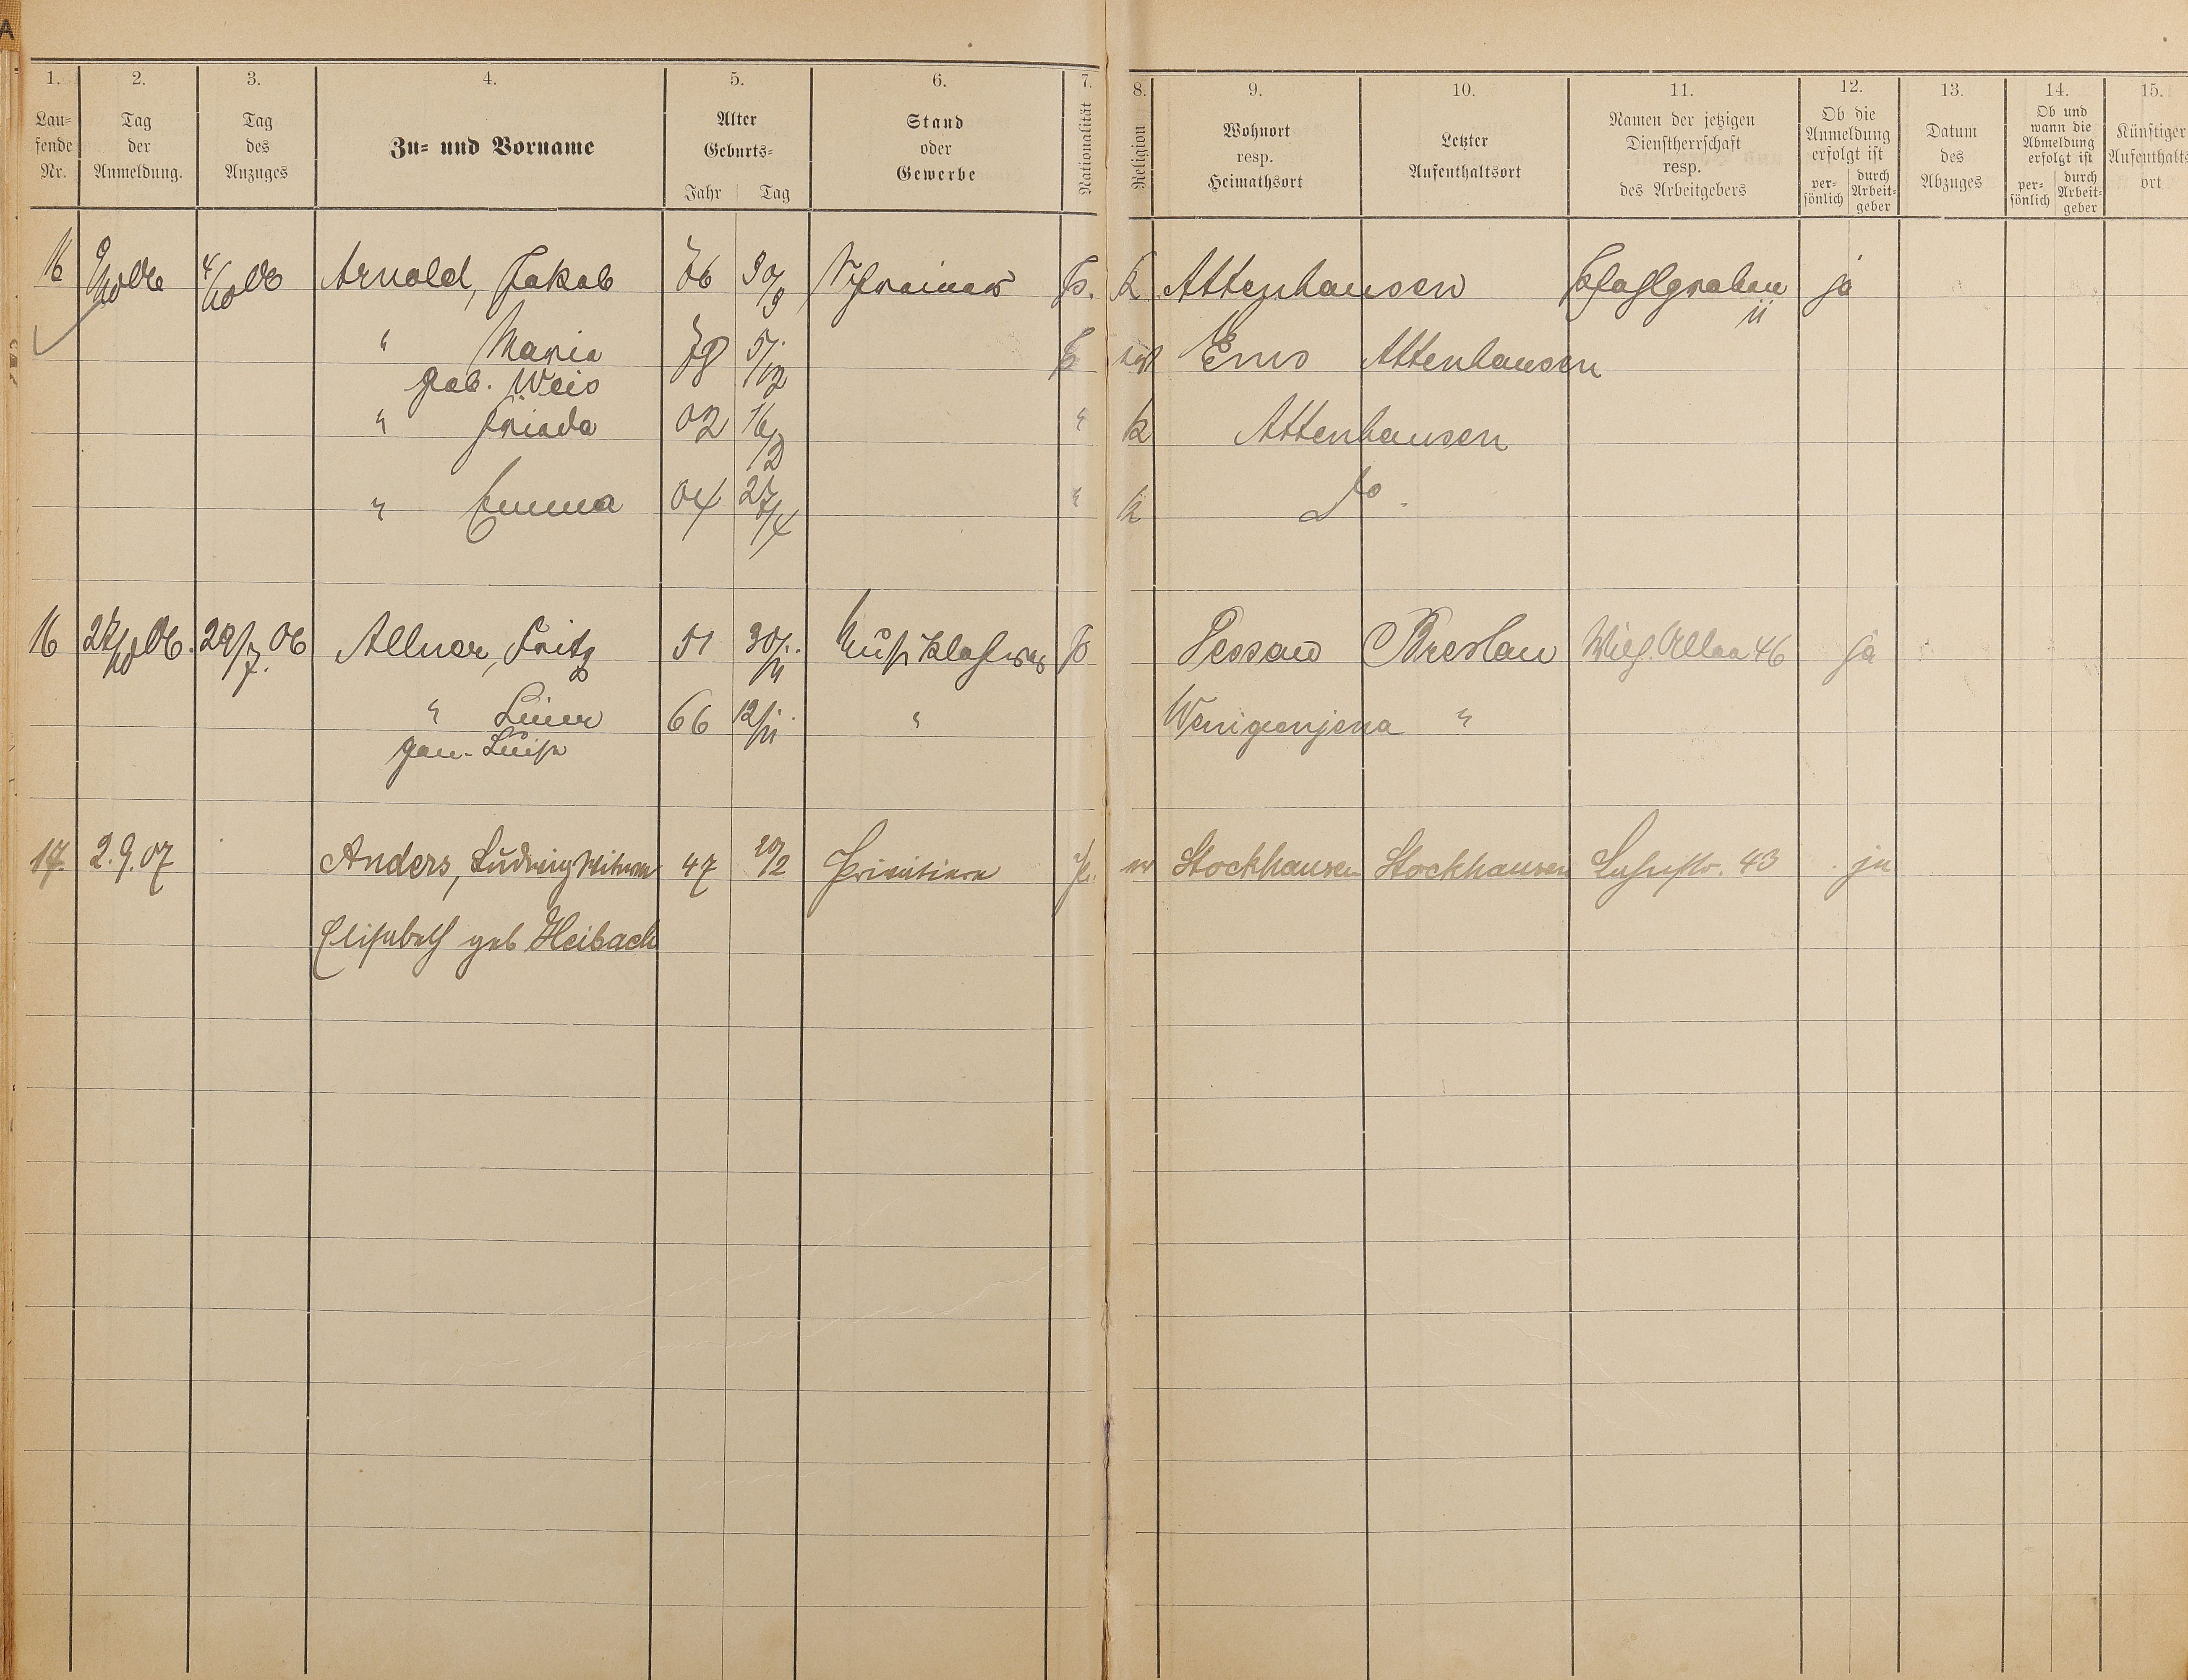 A
1. 2. 3. 4. 5. 6. 7. 8. 9. 10. 11. 12. 13. 14. 15.
Lau=
fende
Nr.
Tag
der
Anmeldung.
Tag
des
Anzuges
Zu= und Vorname
Alter
Geburts=
Jahr Tag
Stand
oder
Gewerbe
Nationalität
Religion
Wohnort
resp.
Heimathsort
Letzter
Aufenthaltsort
Namen der jetzigen
Dienstherrschaft
resp.
des Arbeitgebers
Ob die
Anmeldung
erfolgt ist
per=
sönlich
durch
Arbeit=
geber
Datum
des
Abzuges
Ob und
wann die
Abmeldung
erfolgt ist
per=
sönlich
durch
Arbeit=
geber
Künftiger
Aufenthalts
ort
16 9/10 06 4/10 06 Arnold, Jakob 76 30/9 Schreiner P. k Attenhausen Pfahlgraben 11 ja
" Maria 78 5/12 P Ems Attenhausen
geb. Weis
" Frieda 02 16/2 " k Attenhausen
" Emma 04 27/4 " k do
16 27/10 06. 29/7. 06 Allner, Fritz 51 30/11 P Dessau Breslau Wilh. Allee 46 ja
" 66 12/11 " Wenigenjena "
gen. Luise
17. 2.9.07 Anders, Ludwig Witwe 47 20/2 Privatiere Pr. ev Stockhausen Stockhausen 43 ja
Elisabeth geb Heibach